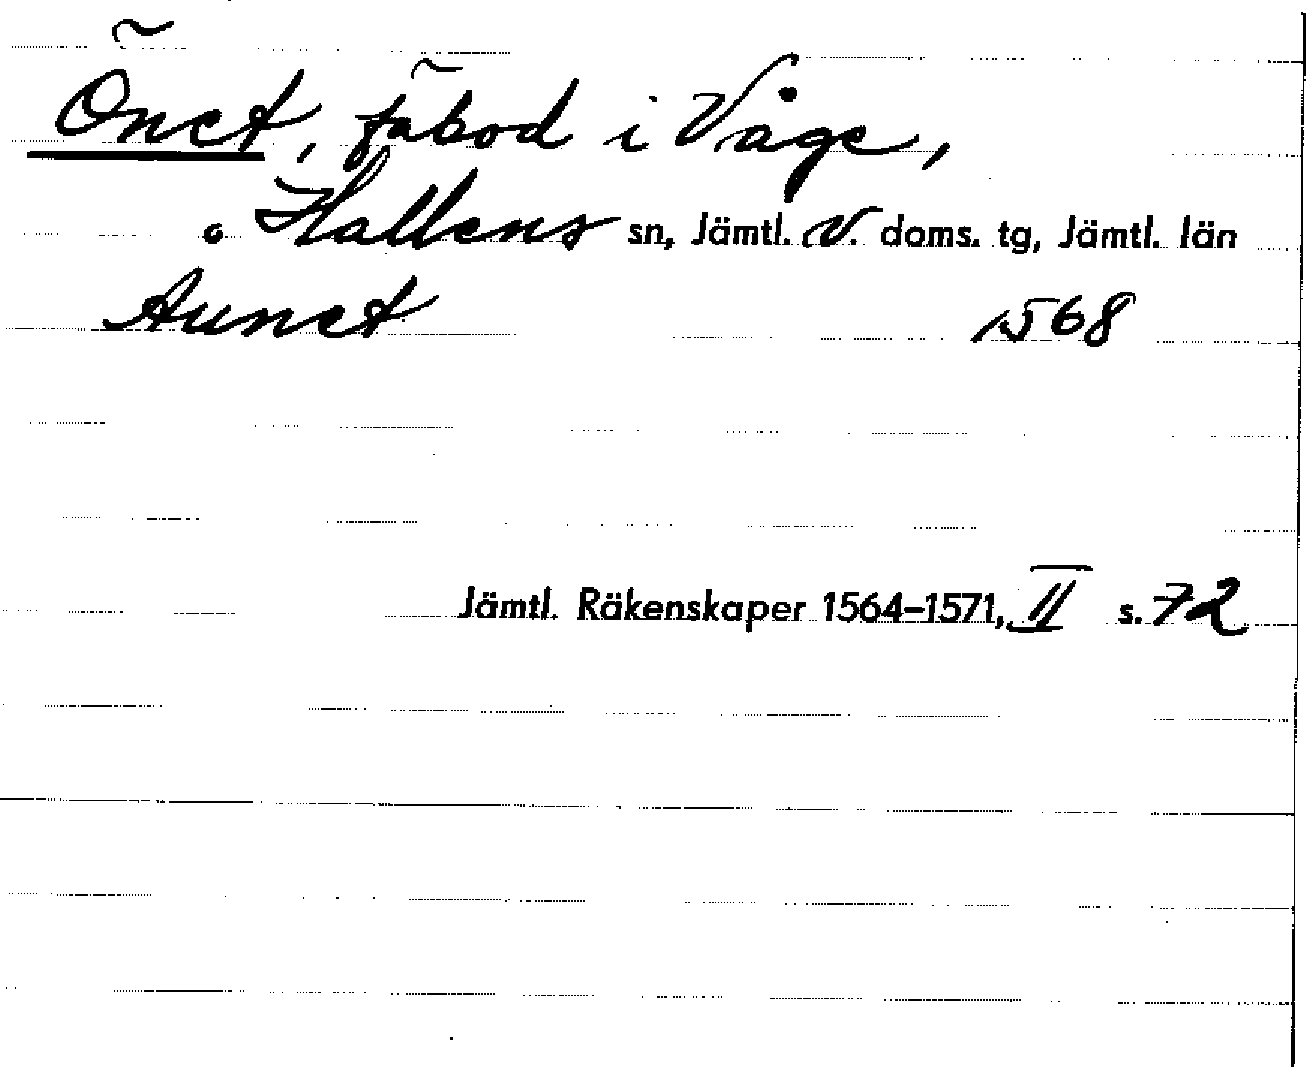 Önet, fäbod i Våge,
o Hallens sn, Jämtl. V. doms. tg, Jämtl. län
Aunet 1568
Jämtl. Räkenskaper 1564–1571, II s. 72